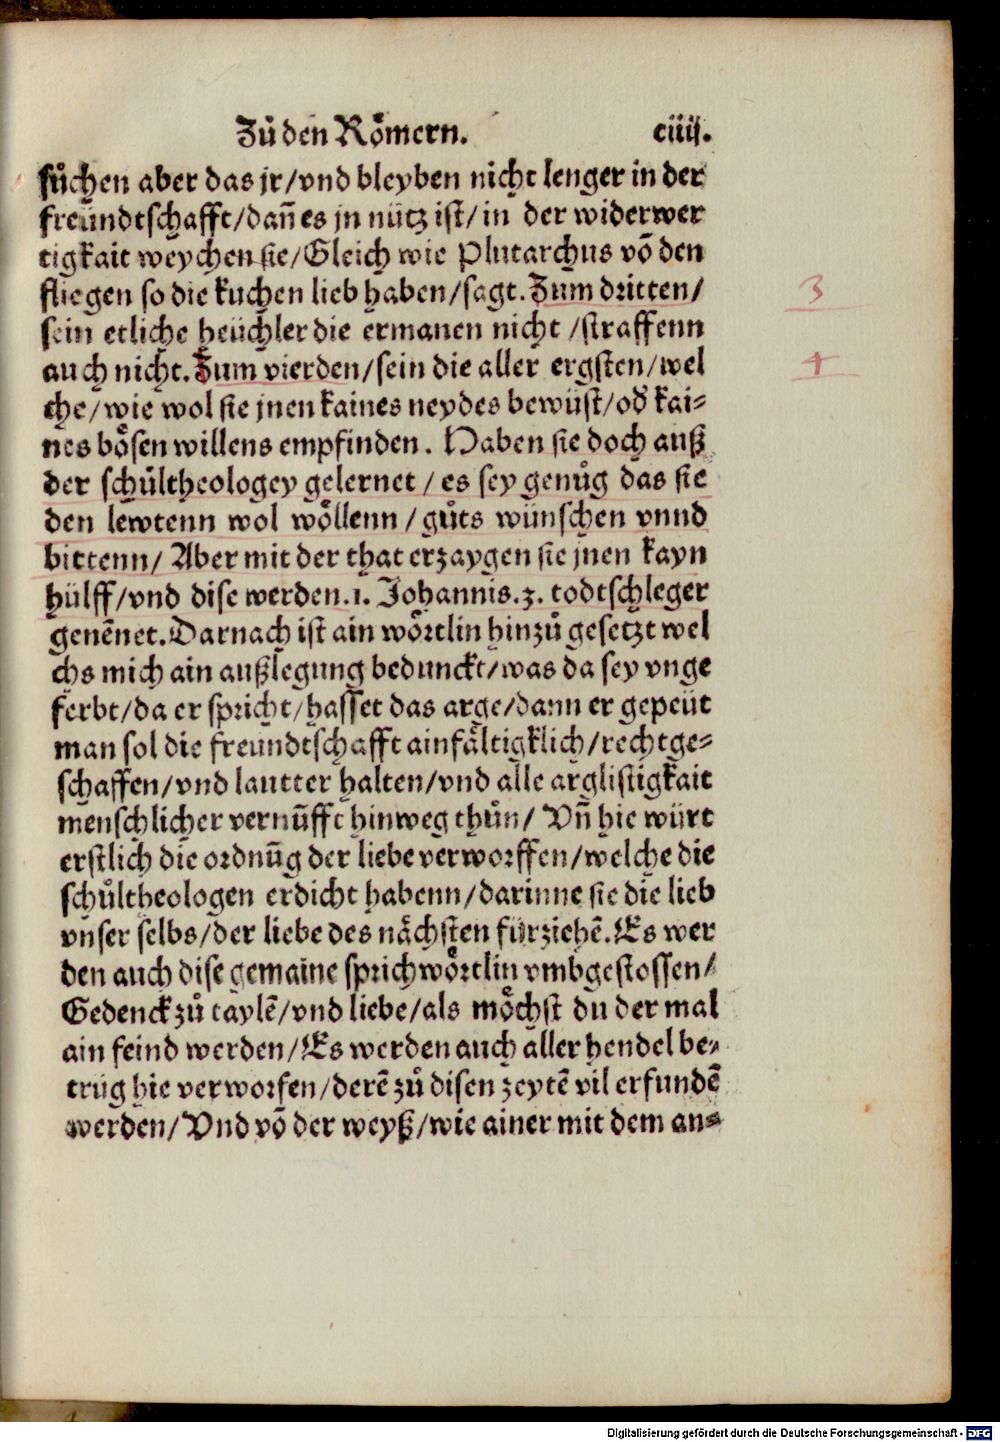 Zů den Rŏmern. ciiij.
sůchen aber das jr/vnd bleyben nicht lenger in der
freündtschafft/dañ es jn nütz ist/in der widerwer
tigkait weychen sie/Gleich wie Plutarchus võ den
fliegen so die kuchen lieb haben/sagt. Zum dritten/
3
sein etliche heüchler die ermanen nicht /straffenn
auch nicht. Zum vierden/sein die aller ergsten/wel
4
che/wie wol sie jnen kaines neydes bewüst/oď kai⸗
nes bösen willens empfinden. Haben sie doch auß
der schůltheologey gelernet / es sey genůg das sie
den lewtenn wol wöllenn / gůts wünschen vnnd
bittenn/ Aber mit der that erzaygen sie jnen kayn
hülff/vnd dise werden.1. Johannis.3. todtschleger
genẽnet. Darnach ist ain wörtlin hinzů gesetzt wel
chs mich ain außlegung bedunckt/was da sey vnge
ferbt/da er spricht/hasset das arge/dann er gepeüt
man sol die freundtschafft ainfältigklich/rechtge⸗
schaffen/vnd lautter halten/vnd alle arglistigkait
menschlicher vernũfft hinweg thůn/ Vñ hie würt
erstlich die ordnũg der liebe verworffen/welche die
schůltheologen erdicht habenn/darinne sie die lieb
vnser selbs/der liebe des nächsten fürziehẽ. Es wer
den auch dise gemaine sprichwörtlin vmbgestossen/
Gedenck zů taylẽ/vnd liebe/als möchst du der mal
ain feind werden/Es werden auch aller hendel be⸗
trüg hie verworfen/derẽ zů disen zeytẽ vil erfundẽ
werden/Vnd võ der weyß/wie ainer mit dem an⸗
Digitalisierung gefördert durch die Deutsche Forschungsgemeinschaft - DFG